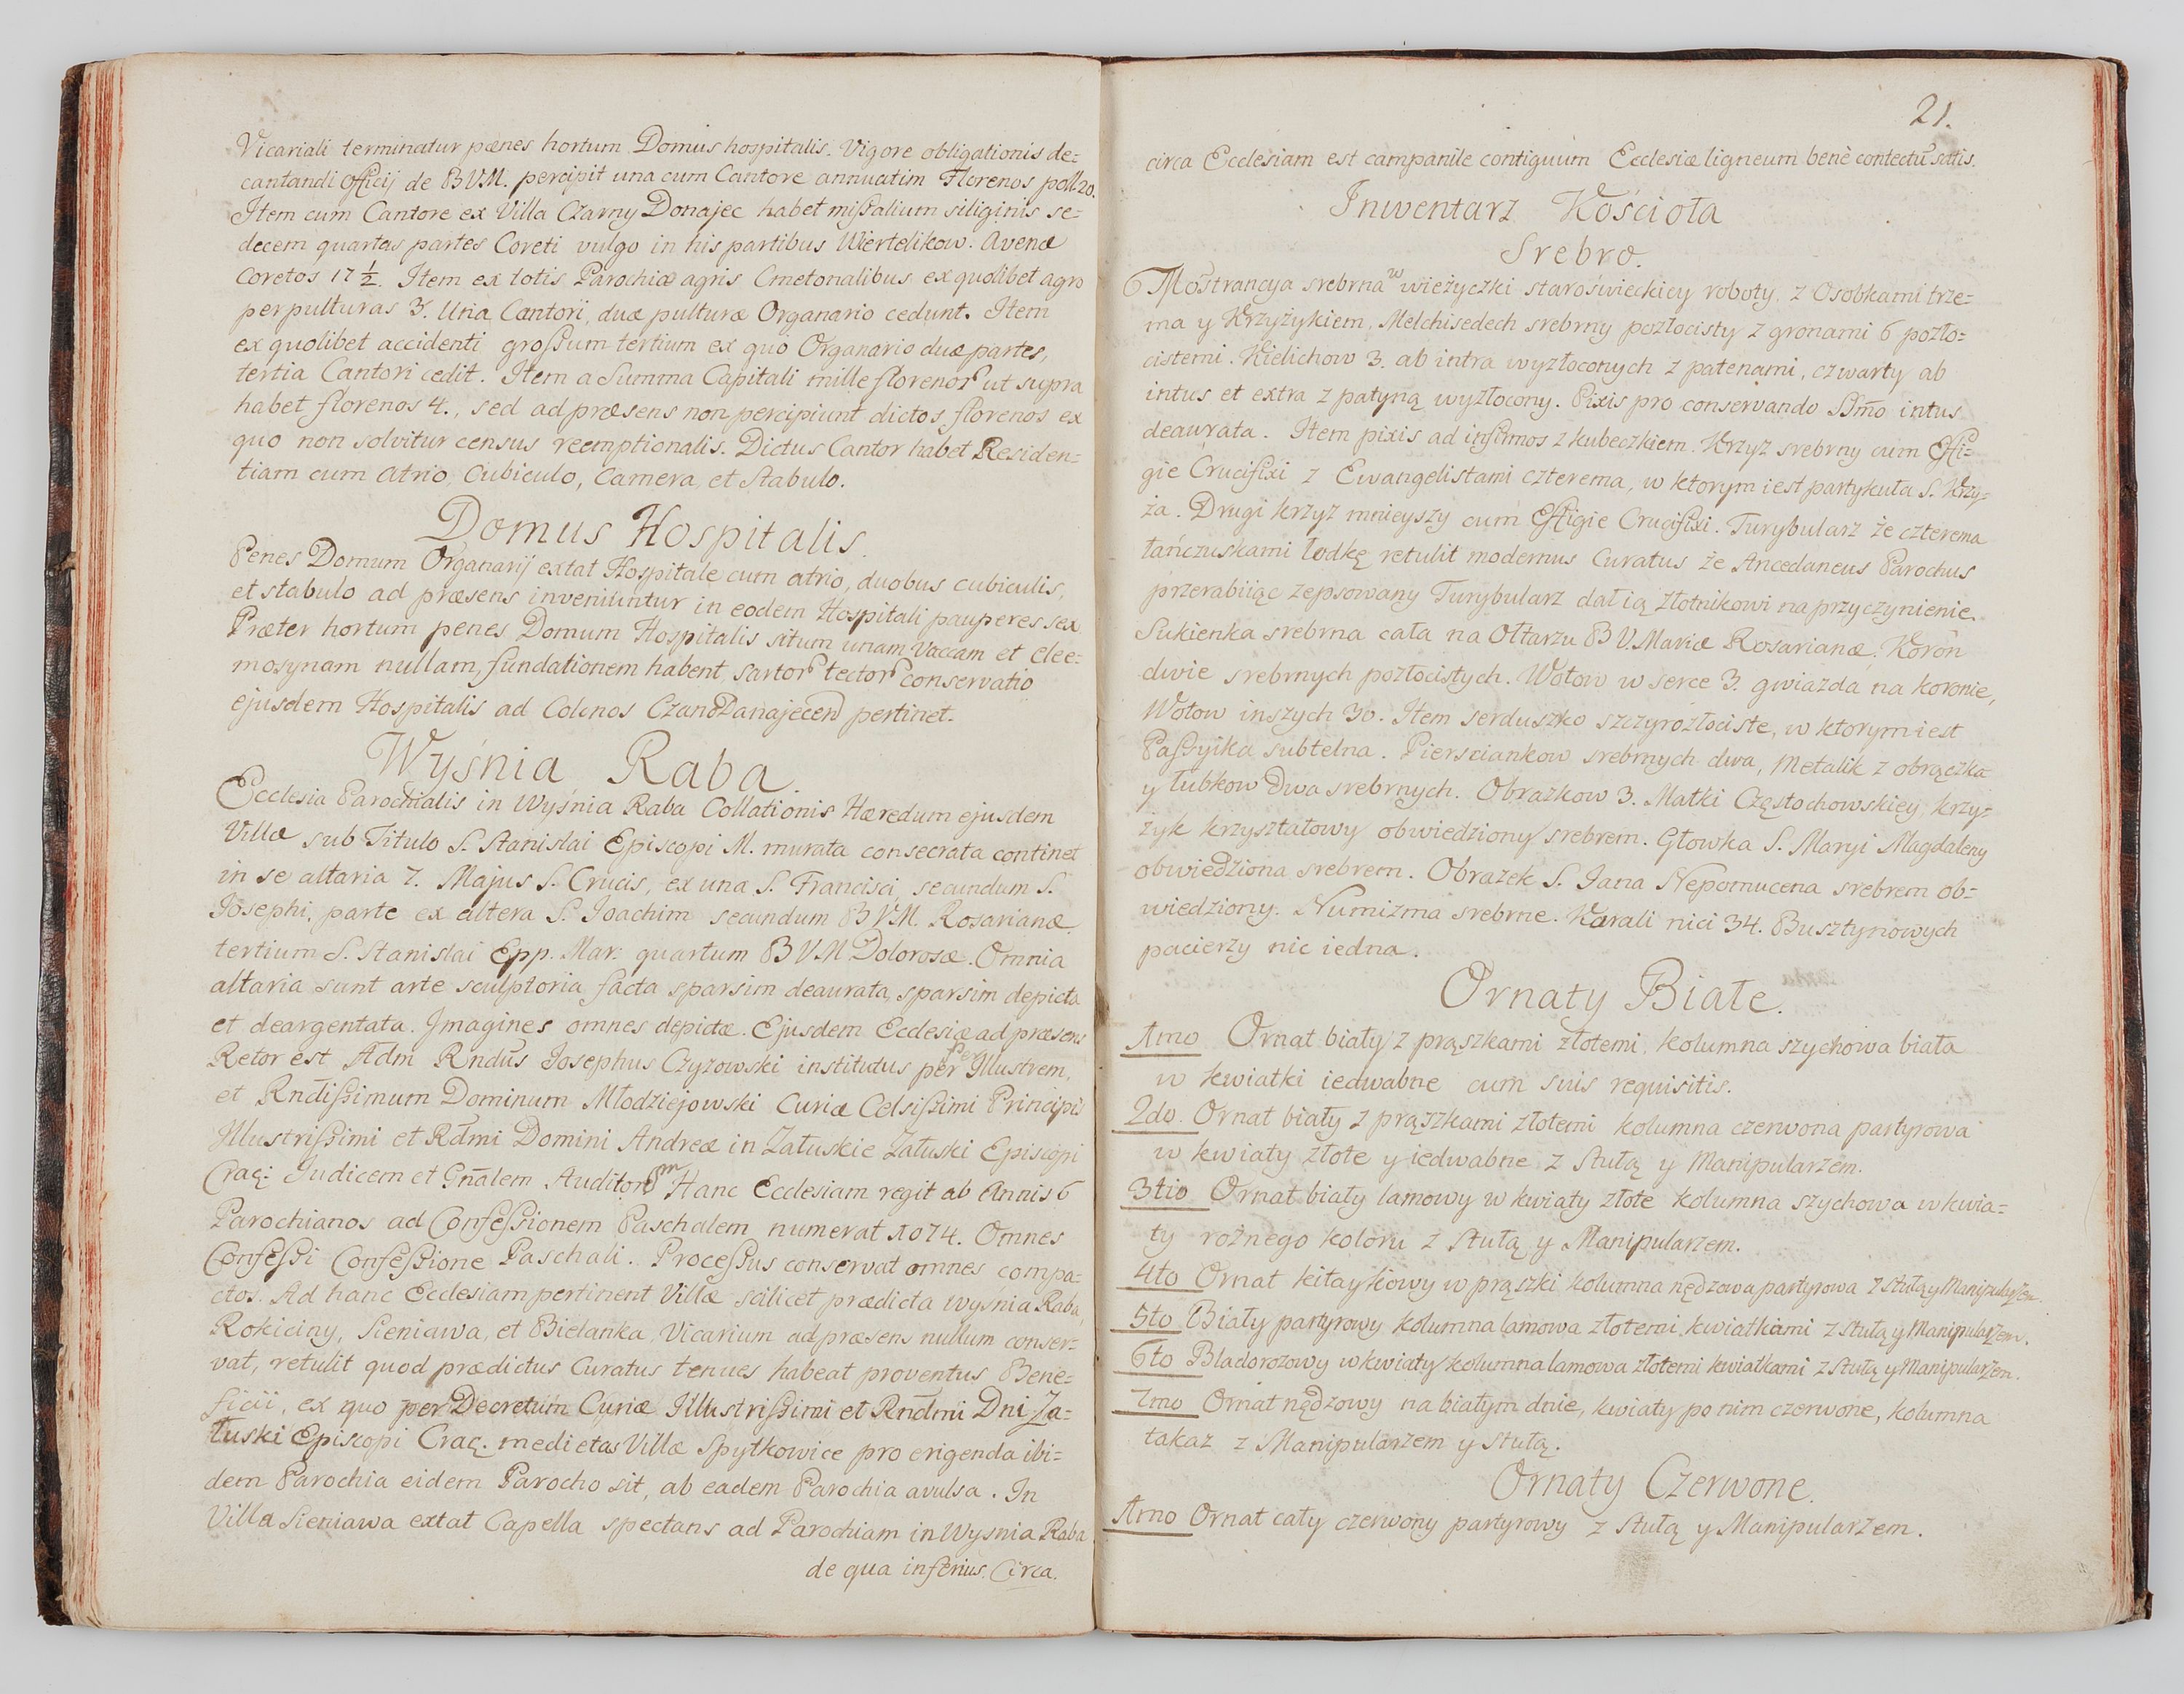 Vicariali terminatur pænes hortum Domus hospitalis. Vigore obligationis de=
cantandi Officij de BVM. percipit una cum Cantore annuatim Florenos poll 20.
Item cum Cantore ex Villa Czarny Donajec habet missalium siliginis se=
decem quartas partes Coreti vulgo in his partibus Wiertelikow. Avenæ
Coretos 17 ½. Item ex totis Parochiæ agris Cmetonalibus ex quolibet agro
per pulturas 3. Una Cantori, duæ pulturæ Organario cedunt. Item
ex quolibet accidenti grossum tertium ex quo Organario duæ partes,
tertia Cantori cedit. Item a Summa Capitali mille florenor ut supra
habet florenos 4., sed ad præsens non percipiunt dictos florenos ex
quo non solvitur census reemptionalis. Dictus Cantor habet Residen=
tiam cum atrio, Cubiculo, Camera, et Stabulo.
Domus Hospitalis.
Penes Domum Organarij extat Hospitale cum atrio, duobus cubiculis,
et stabulo ad præsens inveniuntur in eodem Hospitali pauperes sex
Præter hortum penes Domum Hospitalis situm unam vaccam et elee=
mosynam nullam, fundationem habent, sartor tector conservatio
ejusdem Hospitalis ad Colonos pertinet.
Wyśnia Raba.
Ecclesia Parochialis in Wyśnia Raba Collationis Hæredum ejusdem
Villæ sub Titulo S. Stanislai Episcopi M. murata consecrata continet
in se altaria 7. Majus S. Crucis, ex una S. Francisci, secundum S.
Josephi, parte ex altera S. Joachim secundum BVM. Rosarianæ
tertium S. Stanislai Epp. Mar: quartum BVM Dolorosæ. Omnia
altaria sunt arte sculptoria facta sparsim deaurata, sparsim depicta
et deargentata. Imagines omnes depictæ. Ejusdem Ecclesiæ ad præsens
Retor est Adm Rndus Josephus Czyzowski institutus per Illustrem,
et Rndissimum Dominum Młodziejowski Curiæ Celsissimi Principis
Illustrissimi et Rdmi Domini Andreæ in Załuskie Załuski Episcopi
Crac: Judicem et Gnalem Auditorem Hanc Ecclesiam regit ab Annis 6
Parochianos ad Confessionem Paschalem numerat 1074. Omnes
Confessi Confessione Paschali. Processus conservat omnes compa=
ctos. Ad hanc Ecclesiam pertinent Villæ scilicet prædicta Wyśnia Raba,
Rokiciny, Sieniawa, et Bielanka, Vicarium ad præsens nullum conser=
vat, retulit quod prædictus Curatus tenues habeat proventus Bene=
ficii, ex quo per Decretum Curiæ Illustrissimi et Rndmi Dni Za=
łuski Episcopi Crac. medietas Villæ Spytkowice pro erigenda ibi=
dem Parochia eidem Parocho sit, ab eadem Parochia avulsa. In
Villa Sieniawa extat Capella spectans ad Parochiam in Wysnia Raba
de qua inferius. Circa.
21.
circa Ecclesiam est campanile contiguum Ecclesiæ ligneum benè contectu satis.
Inwentarz Kościoła
Srebro.
6 Mostrancya srebrna w wieżyczki staroświeckiey roboty, z Osobkami trze=
ma y Krzyżykiem, Melchisedech srebrny pozłocisty z gronami 6 pozło=
cistemi. Kielichow 3. ab intra wyzłoconych z patenami, czwarty ab
intus et extra z patyną wyzłocony. Pixis pro conservando SSmo intus
deaurata. Item pixis ad infirmos z kubeczkiem. Krzyz srebrny cum Effi=
gie Crucifixi z Ewangelistami czterema, w ktorym iest partykuła S. Krzy=
ża. Drugi krzyz mnieyszy cum Effigie Crucifixi. Turybularz że czterema
łańczuskami łodkę retulit modernus Curatus że Ancedaneus Parochus
przerabiiąc zepsowany Turybularz dał ią złotnikowi na przyczynienie.
Sukienka srebrna cała na Ołtarzu BV. Mariæ Rosarianæ. Koron
dwie srebrnych pozłocistych. Wotow w serce 3. gwiazda na koronie,
Wotow inszych 30. Item serduszko szczyrozłociste, w ktorym iest
Passyika subtelna. Piersciankow srebrnych dwa, Metalik z obrączka
y łubkow Dwa srebrnych. Obrazkow 3. Matki Częstochowskiey, krzy=
żyk krzyształowy obwiedziony srebrem. Głowka S. Maryi Magdaleny
obwiedziona srebrem. Obrazek S. Jana Nepomucena srebrem ob=
wiedziony. Numizma srebrne. Korali nici 34. Busztynowych
pacierzy nic iedna.
Ornaty Białe.
1mo Ornat biały z prąszkami złotemi, kolumna szychowa biała
w kwiatki iedwabne cum suis requisitis.
2do. Ornat biały z prąszkami złotemi kolumna czerwona partyrowa
w kwiaty złote y iedwabne z Stułą y Manipularzem.
3tio Ornat biały lamowy w kwiaty złote kolumna szychowa w kwia=
ty rożnego koloru z Stułą y Manipularzem.
4to Ornat kitaykowy w prąszki kolumna nędzowa partyrowa z Stułą y Manipularzem.
5to Biały partyrowy kolumna lamowa złotemi kwiatkami z Stułą y Manipularzem.
6to Bladorozowy w kwiaty kolumna lamowa złotemi kwiatkami z Stułą y Manipularzem.
7mo Ornat nędzowy na białym dnie, kwiaty po nim czerwone, kolumna
takaz z Manipularzem y Stułą.
Ornaty Czerwone.
1mo Ornat cały czerwony partyrowy z Stułą y Manipularzem.